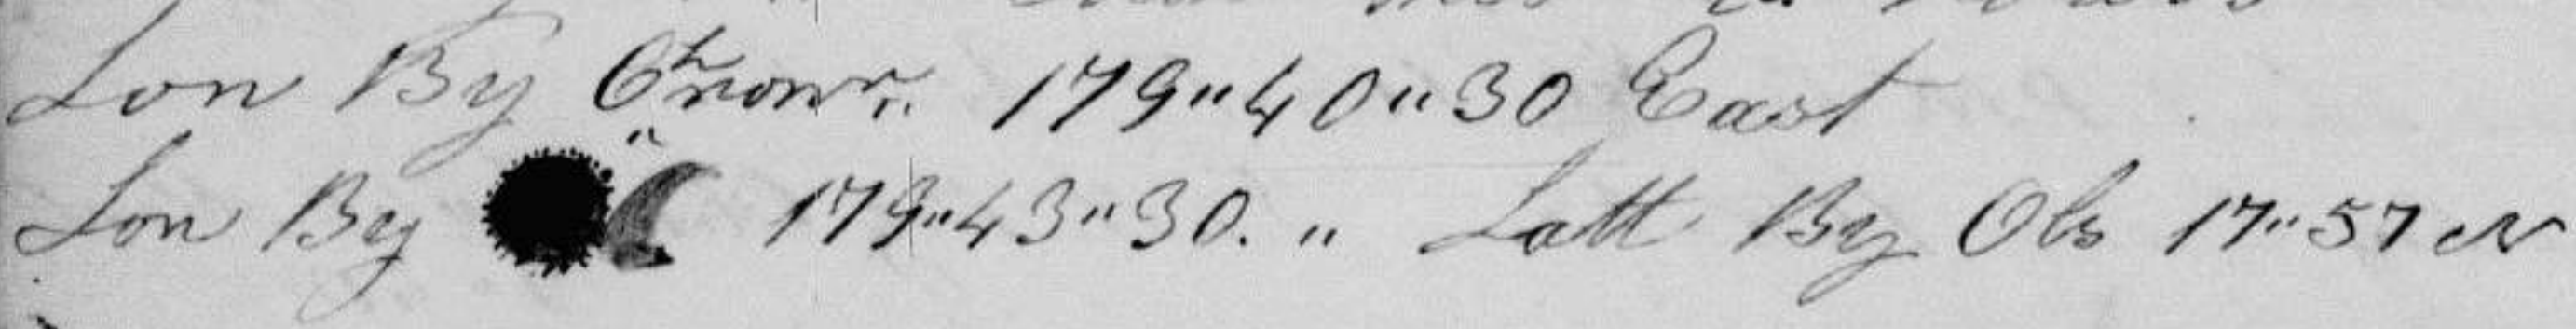 Lon By Chronr,, 179"40"30 East
Lon By 179"43"30. " Latt By Obs 17"57 N